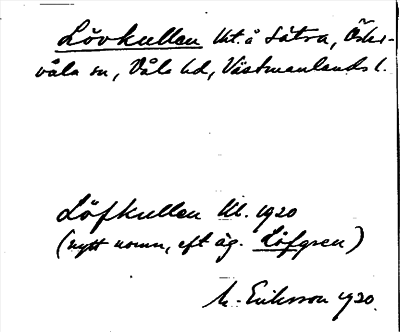 Lövkullen lht. å Sätra, Öster-
våla sn, Våla hd, Västmanlands l.
Löfkullen Ul. 1920
(nytt namn, eft äg. Löfgren)
M. Eriksson 1920.